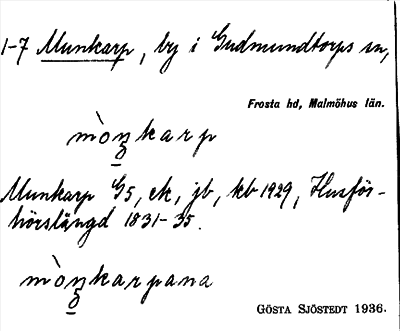 1-7 Munkarp, by i Gudmundtorps sn,
Frosta hd, Malmöhus län.
mòn̥karp
Munkarp G5, ek, jb, kb 1929, Husför-
hörslängd 1831-35.
mòn̥karpana
GÖSTA SJÖSTEDT 1936.